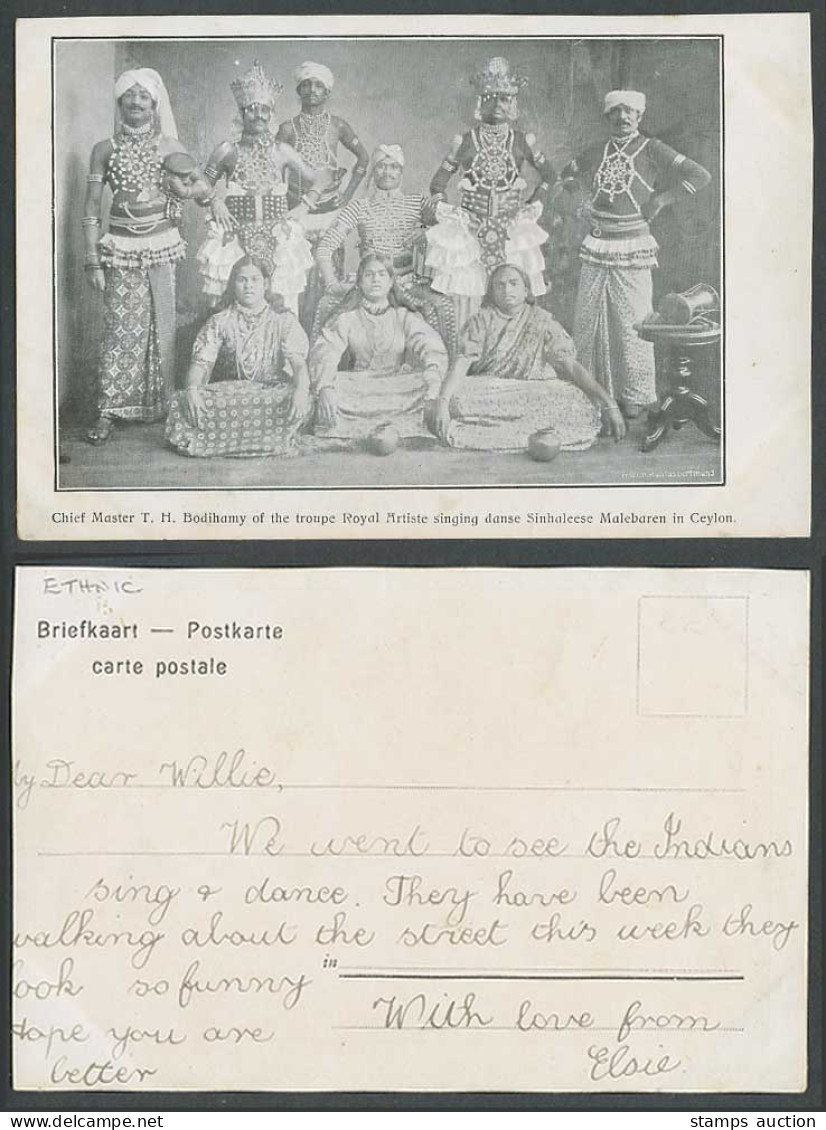 Chief Master T. H. Bodihamy of the troupe Royal Artiste singing danse Sinhaleese Malebaren in Ceylon.
ETHNIC
Briefkaart — Postkarte
carte postale
y Dear Willie,
We went to see the Indians
sing & dance. They have been
walking about the street this week they
in
look so funny
With love from
Hope you are
Elsie.
better
stamps auction